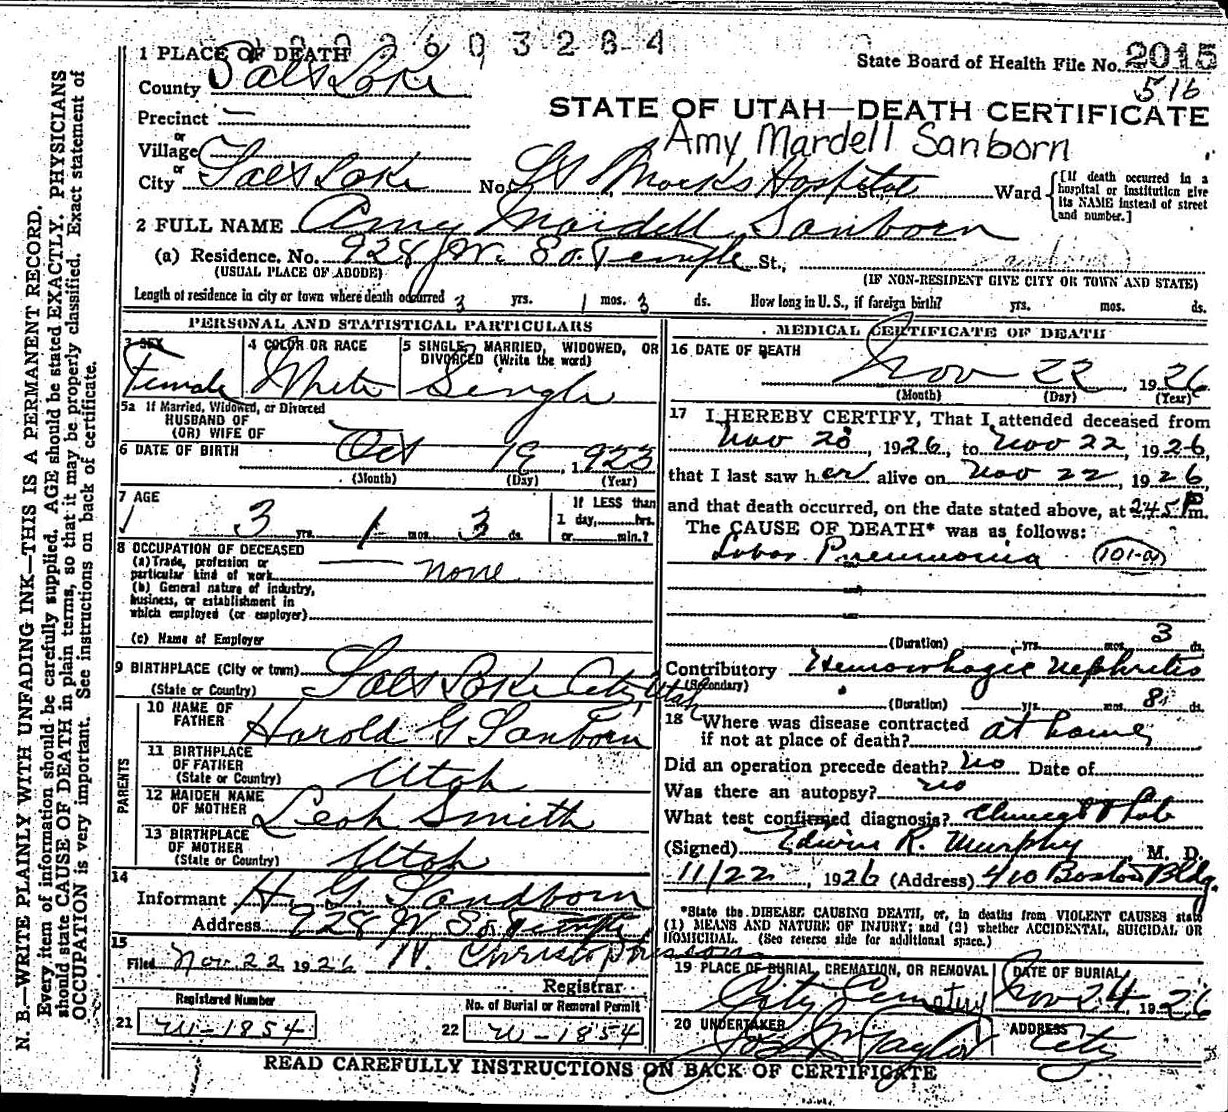 2 2 6 0 3 2 8 4
1 PLACE OF DEATH
State Board of Health File No. 2015
516
County Salt Lake
STATE OF UTAH—DEATH CERTIFICATE
Precinct —
Amy Mardell Sanborn
or
Village
or
City Salt Lake No. St Marks Hospital St., Ward
[If death occurred in a hospital or institution give its NAME instead of street and number.]
2 FULL NAME Amy Mardell Sanborn
(a) Residence. No. 928 W. So. Temple St.,
(USUAL PLACE OF ABODE) (IF NON-RESIDENT GIVE CITY OR TOWN AND STATE)
Length of residence in city or town where death occurred 3 yrs. 1 mos. 3 ds. How long in U. S., if foreign birth? yrs. mos. ds.
PERSONAL AND STATISTICAL PARTICULARS
3 SEX 4 COLOR OR RACE 5 SINGLE, MARRIED, WIDOWED, OR DIVORCED (Write the word)
Female White Single
5a If Married, Widowed, or Divorced
HUSBAND OF
(OR) WIFE OF
6 DATE OF BIRTH Oct 19, 1923
(Month) (Day) (Year)
7 AGE
3 yrs. 1 mos. 3 ds.
If LESS than
1 day, hrs.
or min.?
8 OCCUPATION OF DECEASED
(a) Trade, profession or
particular kind of work none
(b) General nature of industry,
business, or establishment in
which employed (or employer)
(c) Name of Employer
9 BIRTHPLACE (City or town) Salt Lake City, Utah
(State or Country)
PARENTS
10 NAME OF
FATHER Harold G Sanborn
11 BIRTHPLACE
OF FATHER
(State or Country) Utah
12 MAIDEN NAME
OF MOTHER Leah Smith
13 BIRTHPLACE
OF MOTHER
(State or Country) Utah
14
Informant H. G. Sandborn
Address 928 W So Temple
15
Filed Nov. 22 1926 N. Christophersons
Registrar
Registered Number No. of Burial or Removal Permit
21 W-1854 22 W-1854
MEDICAL CERTIFICATE OF DEATH
16 DATE OF DEATH
Nov 22, 1926
(Month) (Day) (Year)
17 I HEREBY CERTIFY, That I attended deceased from
Nov 20, 1926, to Nov 22, 1926,
that I last saw her alive on Nov 22, 1926,
and that death occurred, on the date stated above, at 2.45 P m.
The CAUSE OF DEATH* was as follows:
Lobar Pneumonia 101-a
(Duration) yrs. mos. 3 ds.
Contributory Hemorrhagic Nephritis
(Secondary)
(Duration) yrs. mos. 8 ds.
18 Where was disease contracted
if not at place of death? at home
Did an operation precede death? No Date of
Was there an autopsy? no
What test confirmed diagnosis? Clinical & Lab
(Signed) Edwin R. Murphy M. D.
11/22, 1926 (Address) 410 Boston Bldg.
*State the DISEASE CAUSING DEATH, or, in deaths from VIOLENT CAUSES state
(1) MEANS AND NATURE OF INJURY; and (2) whether ACCIDENTAL, SUICIDAL OR
HOMICIDAL. (See reverse side for additional space.)
19 PLACE OF BURIAL, CREMATION, OR REMOVAL DATE OF BURIAL
City Cemetery Nov 24 1926
20 UNDERTAKER ADDRESS
Taylor City
READ CAREFULLY INSTRUCTIONS ON BACK OF CERTIFICATE
N. B.—WRITE PLAINLY WITH UNFADING INK—THIS IS A PERMANENT RECORD.
Every item of information should be carefully supplied. AGE should be stated EXACTLY. PHYSICIANS
should state CAUSE OF DEATH in plain terms, so that it may be properly classified. Exact statement of
OCCUPATION is very important. See instructions on back of certificate.